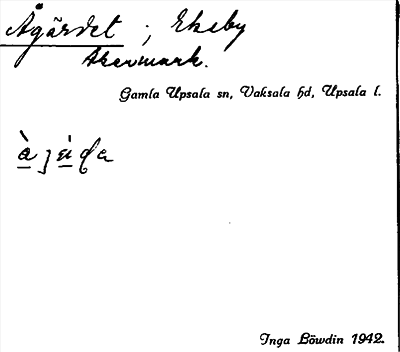 Ågärdet ; Ekeby
Åkermark.
Gamla Upsala sn, Vaksala hd, Upsala l.
Inga Löwdin 1942.